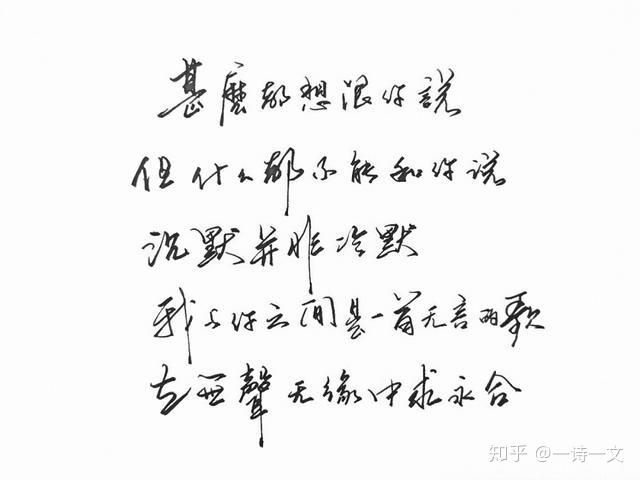 甚麼都想跟你說
但什么都不能和你说
沉默并非冷默
我与你之间是一首无言的歌
在無聲无缘中求永合
知乎 @一诗一文